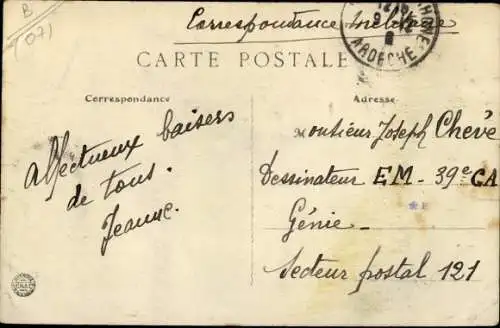 B
(07)
Correspondance militaire
ARDECHE
CARTE POSTALE
Correspondance
Adresse
Affectueux baisers
de tous.
Jeanne.
Monsieur Joseph Chevé
Dessinateur EM - 39e CA
Génie -
Secteur postal 121